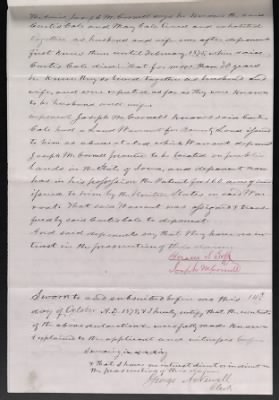 Joseph McCornell says he knows the said
Curtis Cole and May Cole lived and cohabited
together as husband and wife ever after deponent
first knew them until February 1875 when said
Curtis Cole died. That for more than 20 years
he knew they so lived together as husband and
wife, and were reputed as far as they was known
to be husband and wife
deponent Joseph McCornell knows said Curtis
Cole had a Land Warrant for Bounty Land issued
to him as above stated which Warrant deponent
Joseph McCornell to be located on public
lands in the State of Iowa, and deponent now
has in his possession the Patent for acres of land
issued to him by the United States on said War-
rant. That said Warrant was assigned & trans-
fered by said Curtis Cole to deponent
And said deponents say that they have no in-
terest in the prosecution of this claim
Joseph McCornell
Sworn to and subscribed before me this 14th
day of October A.D. 1878, & I hereby certify that the contents
of the above declaration &c were fully made known
& explained to the applicant and witnesses before
swearing
& that I have no interest direct or indirect in
the prosecution of this claim
George Newell
Clerk